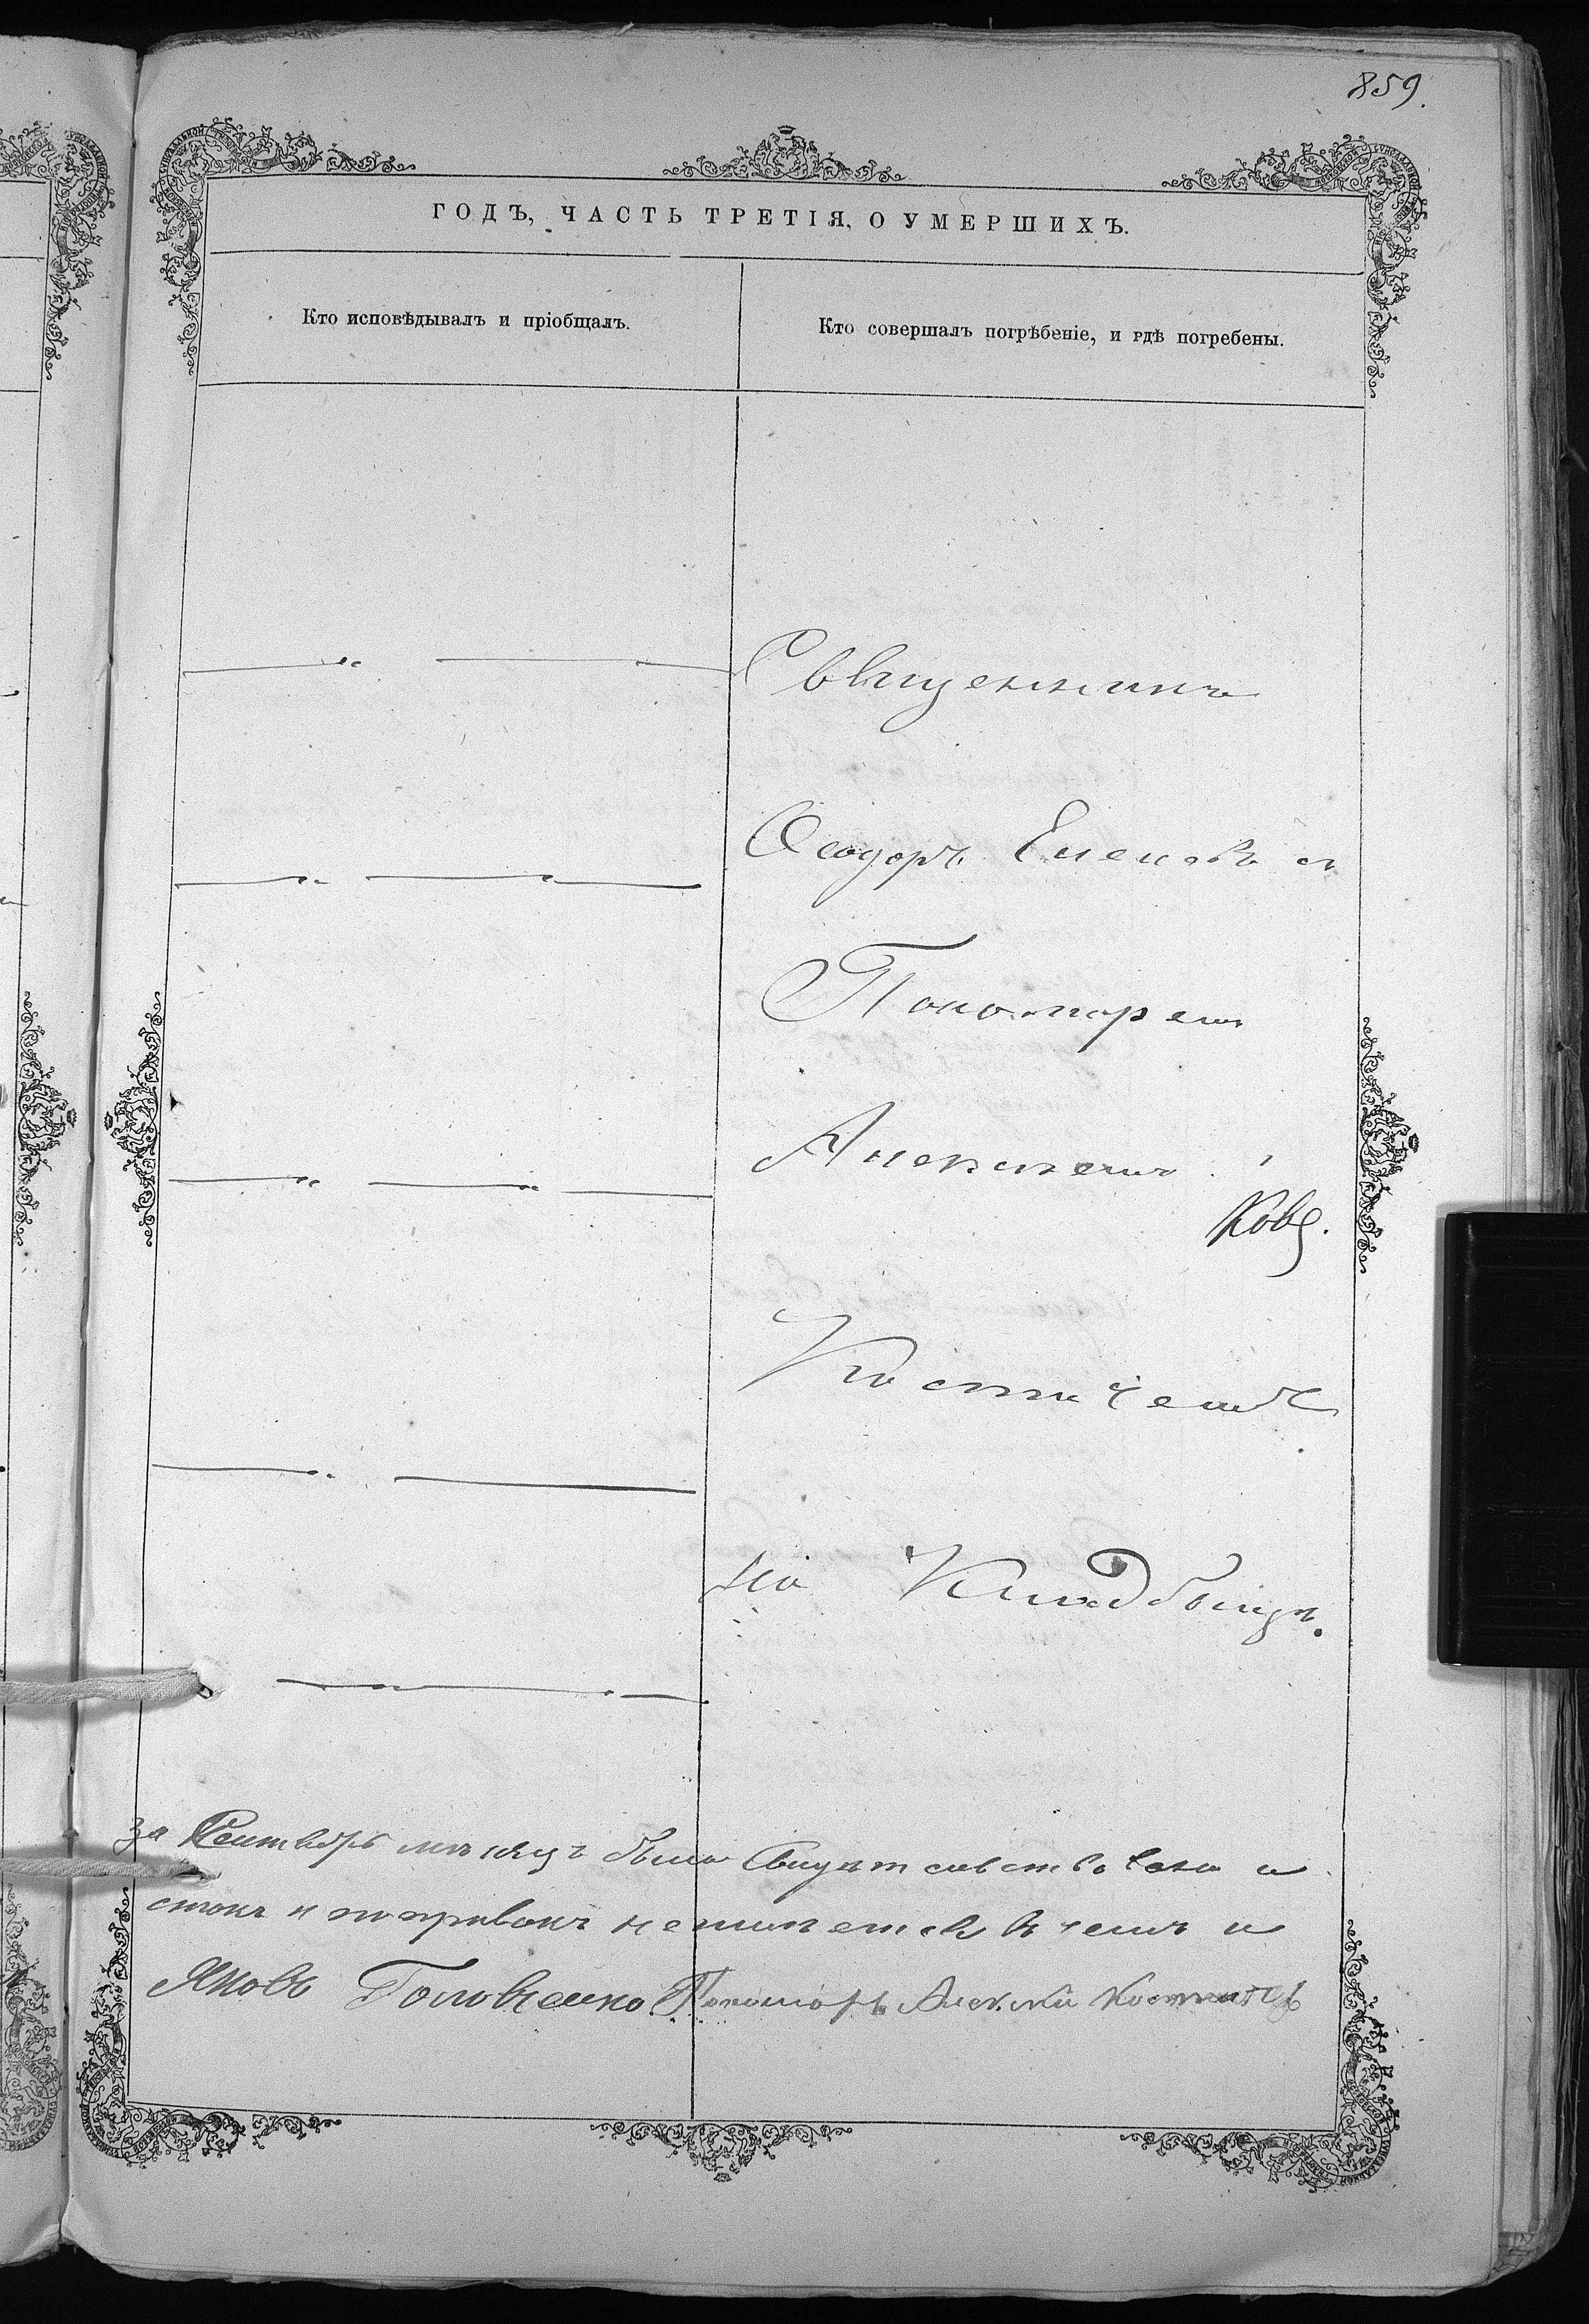 859.
ГОДЪ, ЧАСТЬ ТРЕТІЯ, О УМЕРШИХЪ.
Кто исповѣдывалъ и пріобщалъ.
Кто совершалъ погрѣбеніе, и гдѣ погребены.
Священникъ
Ѳеодоръ съ
Пономаремъ
Алексѣемъ
Кове.
Костичемъ
на Кладбищѣ.
за Сентябрь мѣсяцъ было Свидѣтельствовано и
и поправокъ въ чемъ и
Яковъ Головченко Пономарь Алексѣй